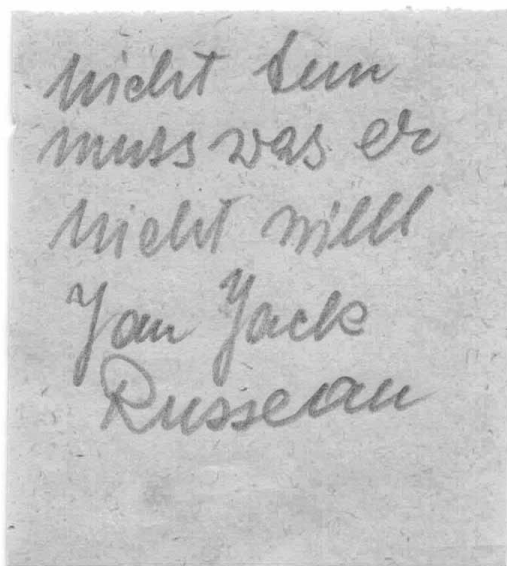 nicht tun
muss was er
nicht will
Jan Jack
Russeau